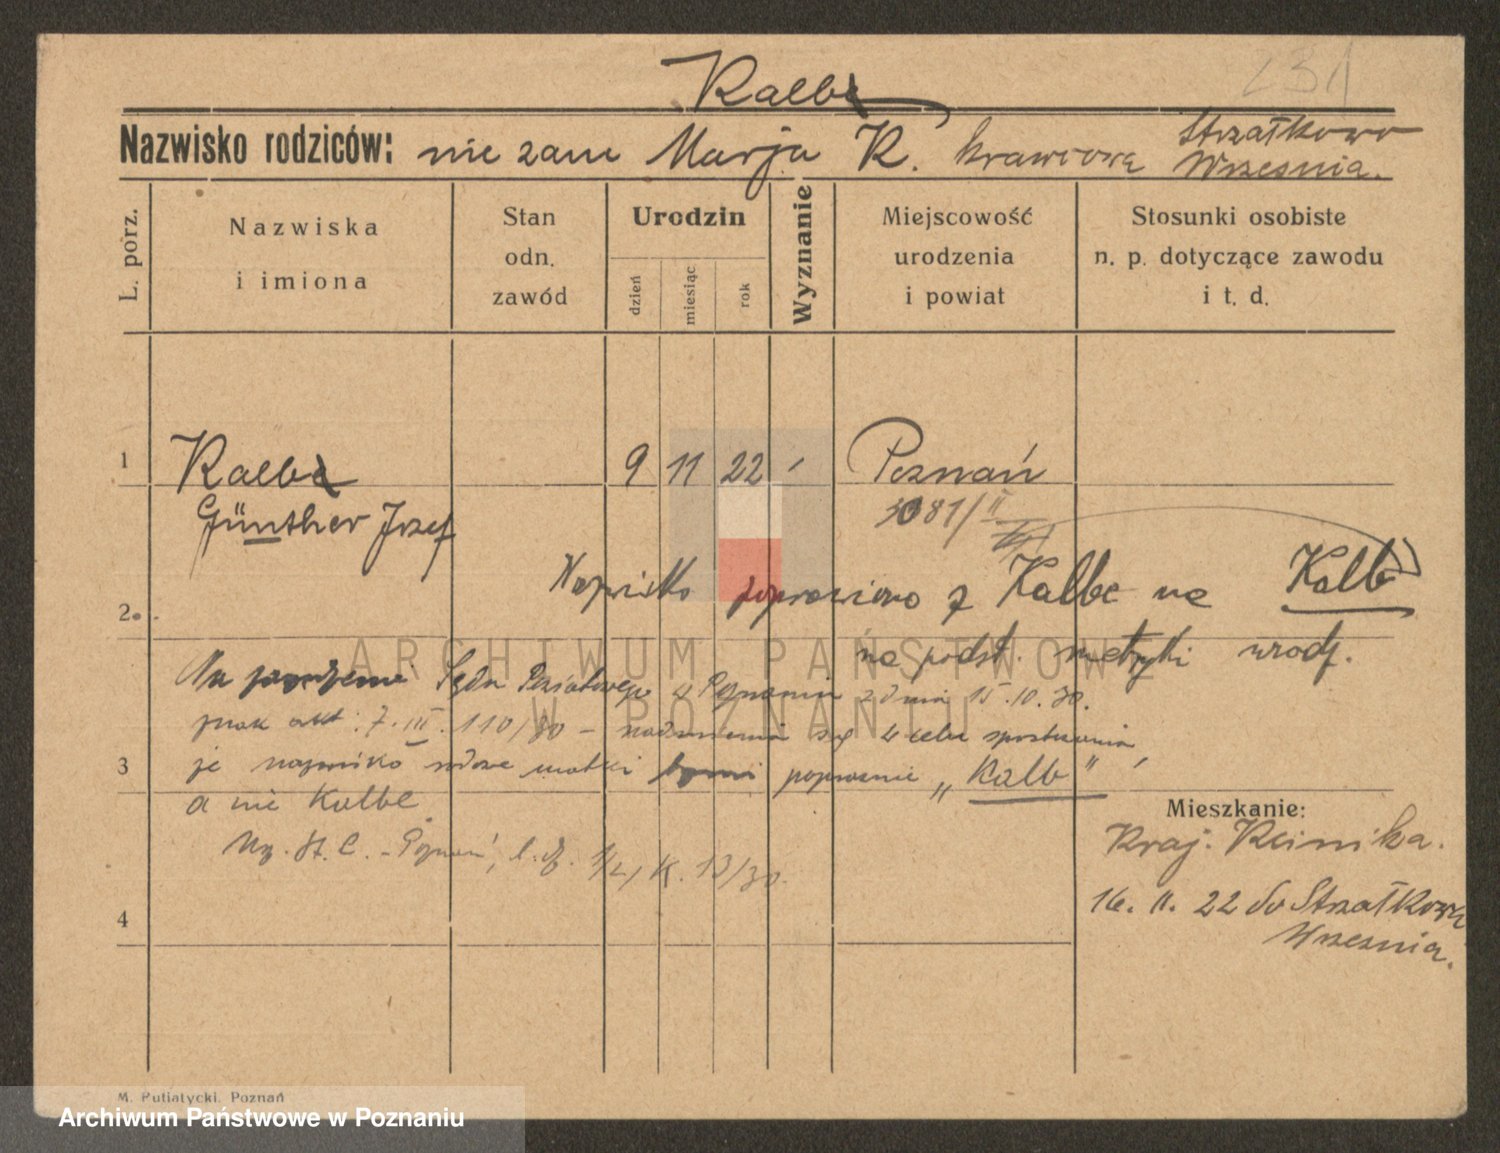 231
Kalbe
Nazwisko rodziców: nie zam Marja K. krawcowa Strzałkowo
Września.
L. porz.
Nazwiska
i imiona
Stan
odn.
zawód
Urodzin
dzień
miesiąc
rok
Wyznanie
Miejscowość
urodzenia
i powiat
Stosunki osobiste
n. p. dotyczące zawodu
i t. d.
1 Kalbe 9 11 22 Poznań
Günther Józef 3081/II
Nazwisko poprawiono z Kalbe na Kalb
2.
na podst. metryki urodz.
Na zarządzenie Sądu Powiatowego w Poznaniu z dnia 15.10.30.
znak akt: 7.III.110/30 – nadmienia się w celu sprostowania,
3 że nazwisko rodowe matki brzmi poprawnie „Kalb"
a nie Kalbe
Mieszkanie:
Urz. St. C. - Poznań, K. 13/30.
Kraj. Klinika.
4
16. II. 22 do Strzałkowa
Września.
M. Putiatycki, Poznań
ARCHIWUM PAŃSTWOWE
W POZNANIU
Archiwum Państwowe w Poznaniu